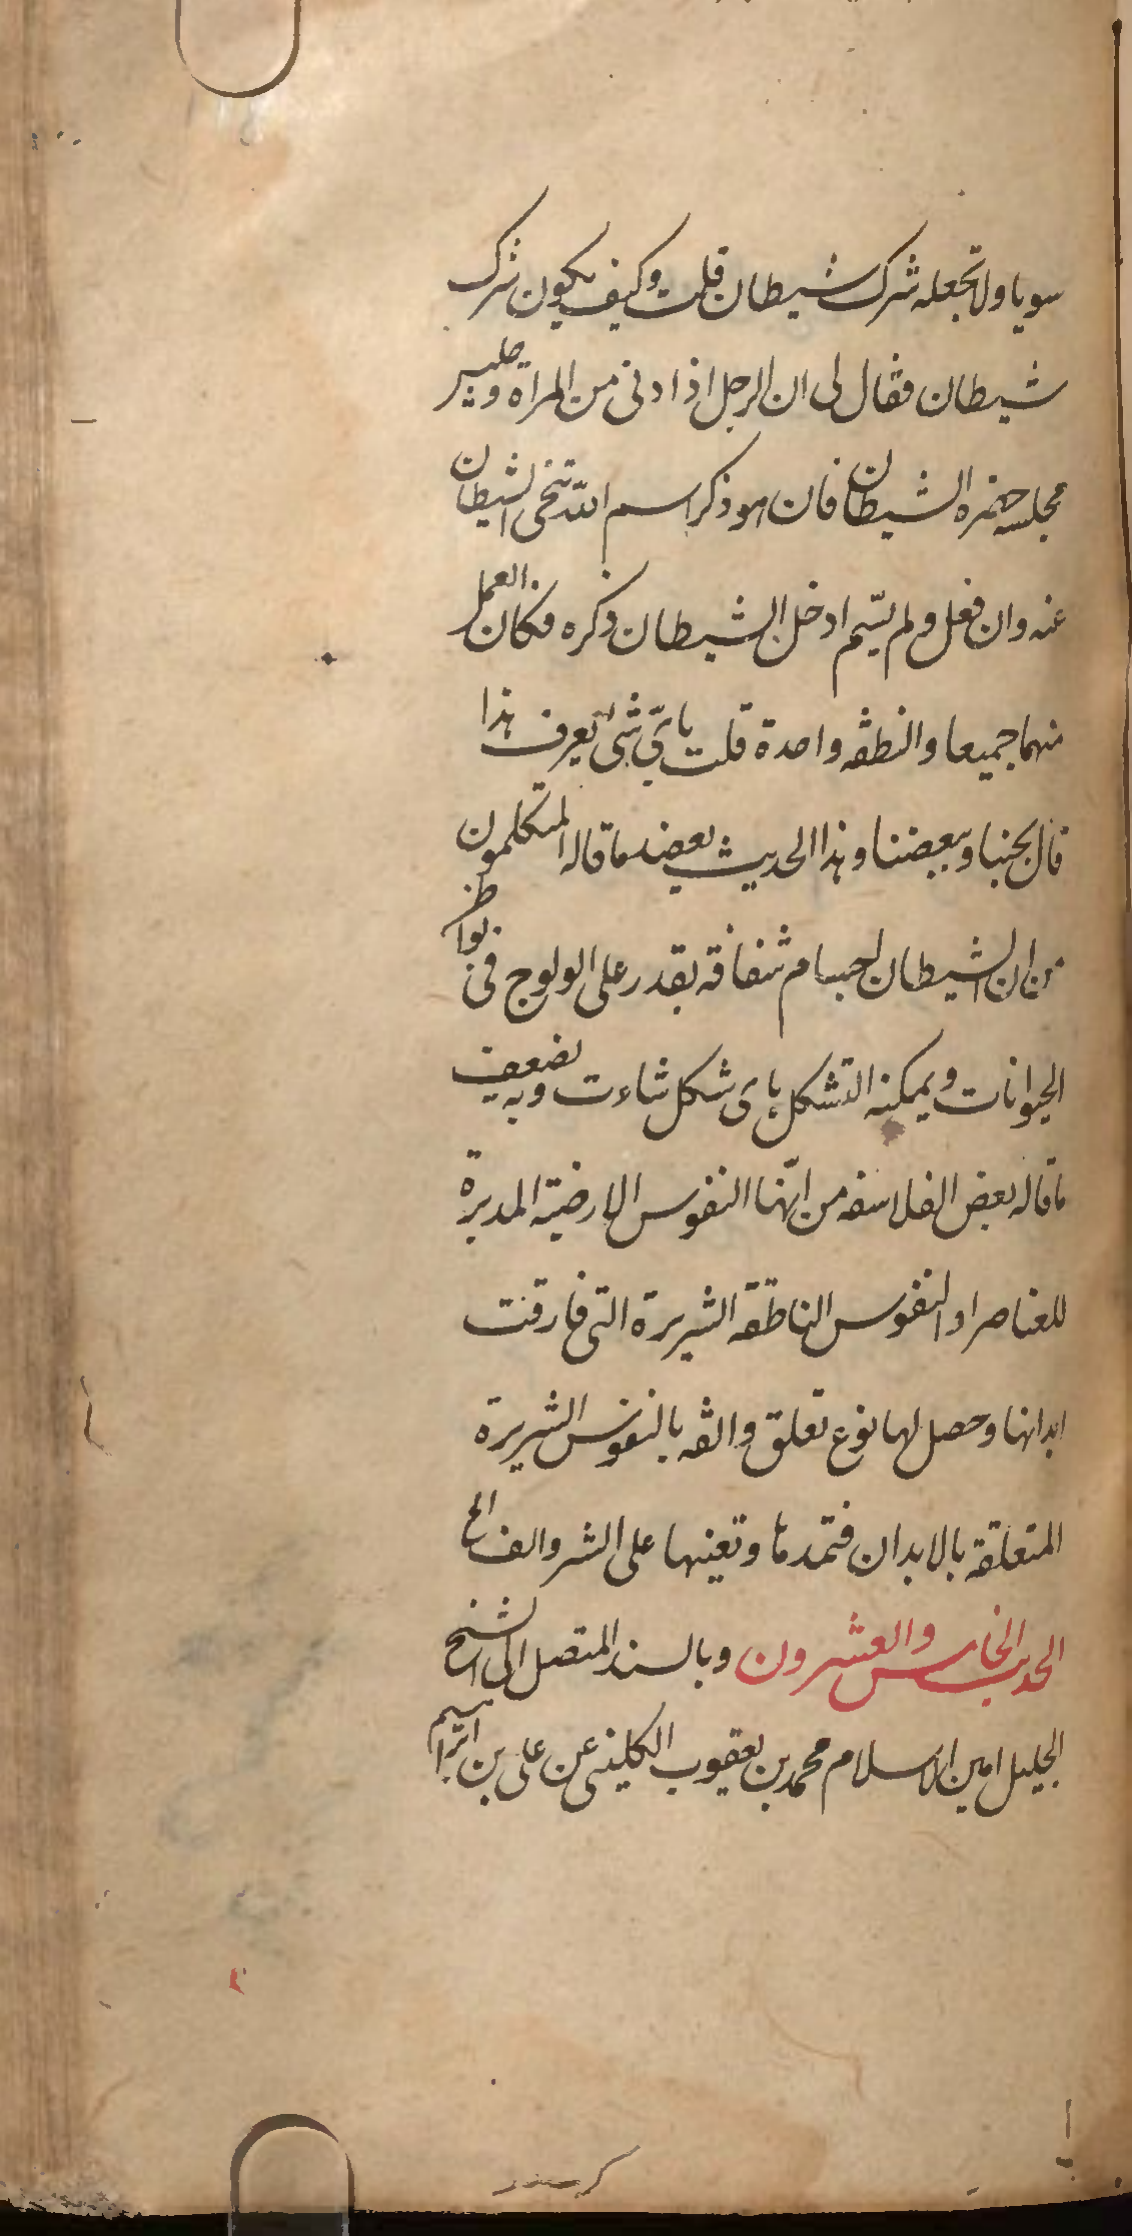 سويا ولا تجعله شرك شيطان قلت وكيف يكون شرك
شيطان فقال لى ان الرجل اذا دنى من المراة وجلس
مجلسه حضره الشيطان فان هو ذكر اسم الله تنحى الشيطان
عنه وان فعل ولم يسّم ادخل الشيطان ذكره فكان العمل
منهما جميعا والنطفه واحدة قلت باىّ شئ يعرف هذا
قال بحبنا وببغضنا وهذا الحديث يعضد ما قاله المتكلمون
من ان الشيطان اجسام شفافه يقدر على الولوج فى بواطن
الحيوانات ويمكنه التشكل باى شكل شاءت وبه يضعف
ما قاله بعض الفلاسفه من انّها النفوس الارضية المدبرة
للعناصر او النفوس الناطقه الشريرة التى فارقت
ابدانها وحصل لها نوع تعلق والفه بالنفوس الشريرة
المتعلقة بالابدان فتمدها وتعينها على الشر والف الخ
الحديث الخامس والعشرون وبالسند المتصل الى الشيخ
الجليل امين الاسلام محمد بن يعقوب الكلينى عن على بن ابراهيم